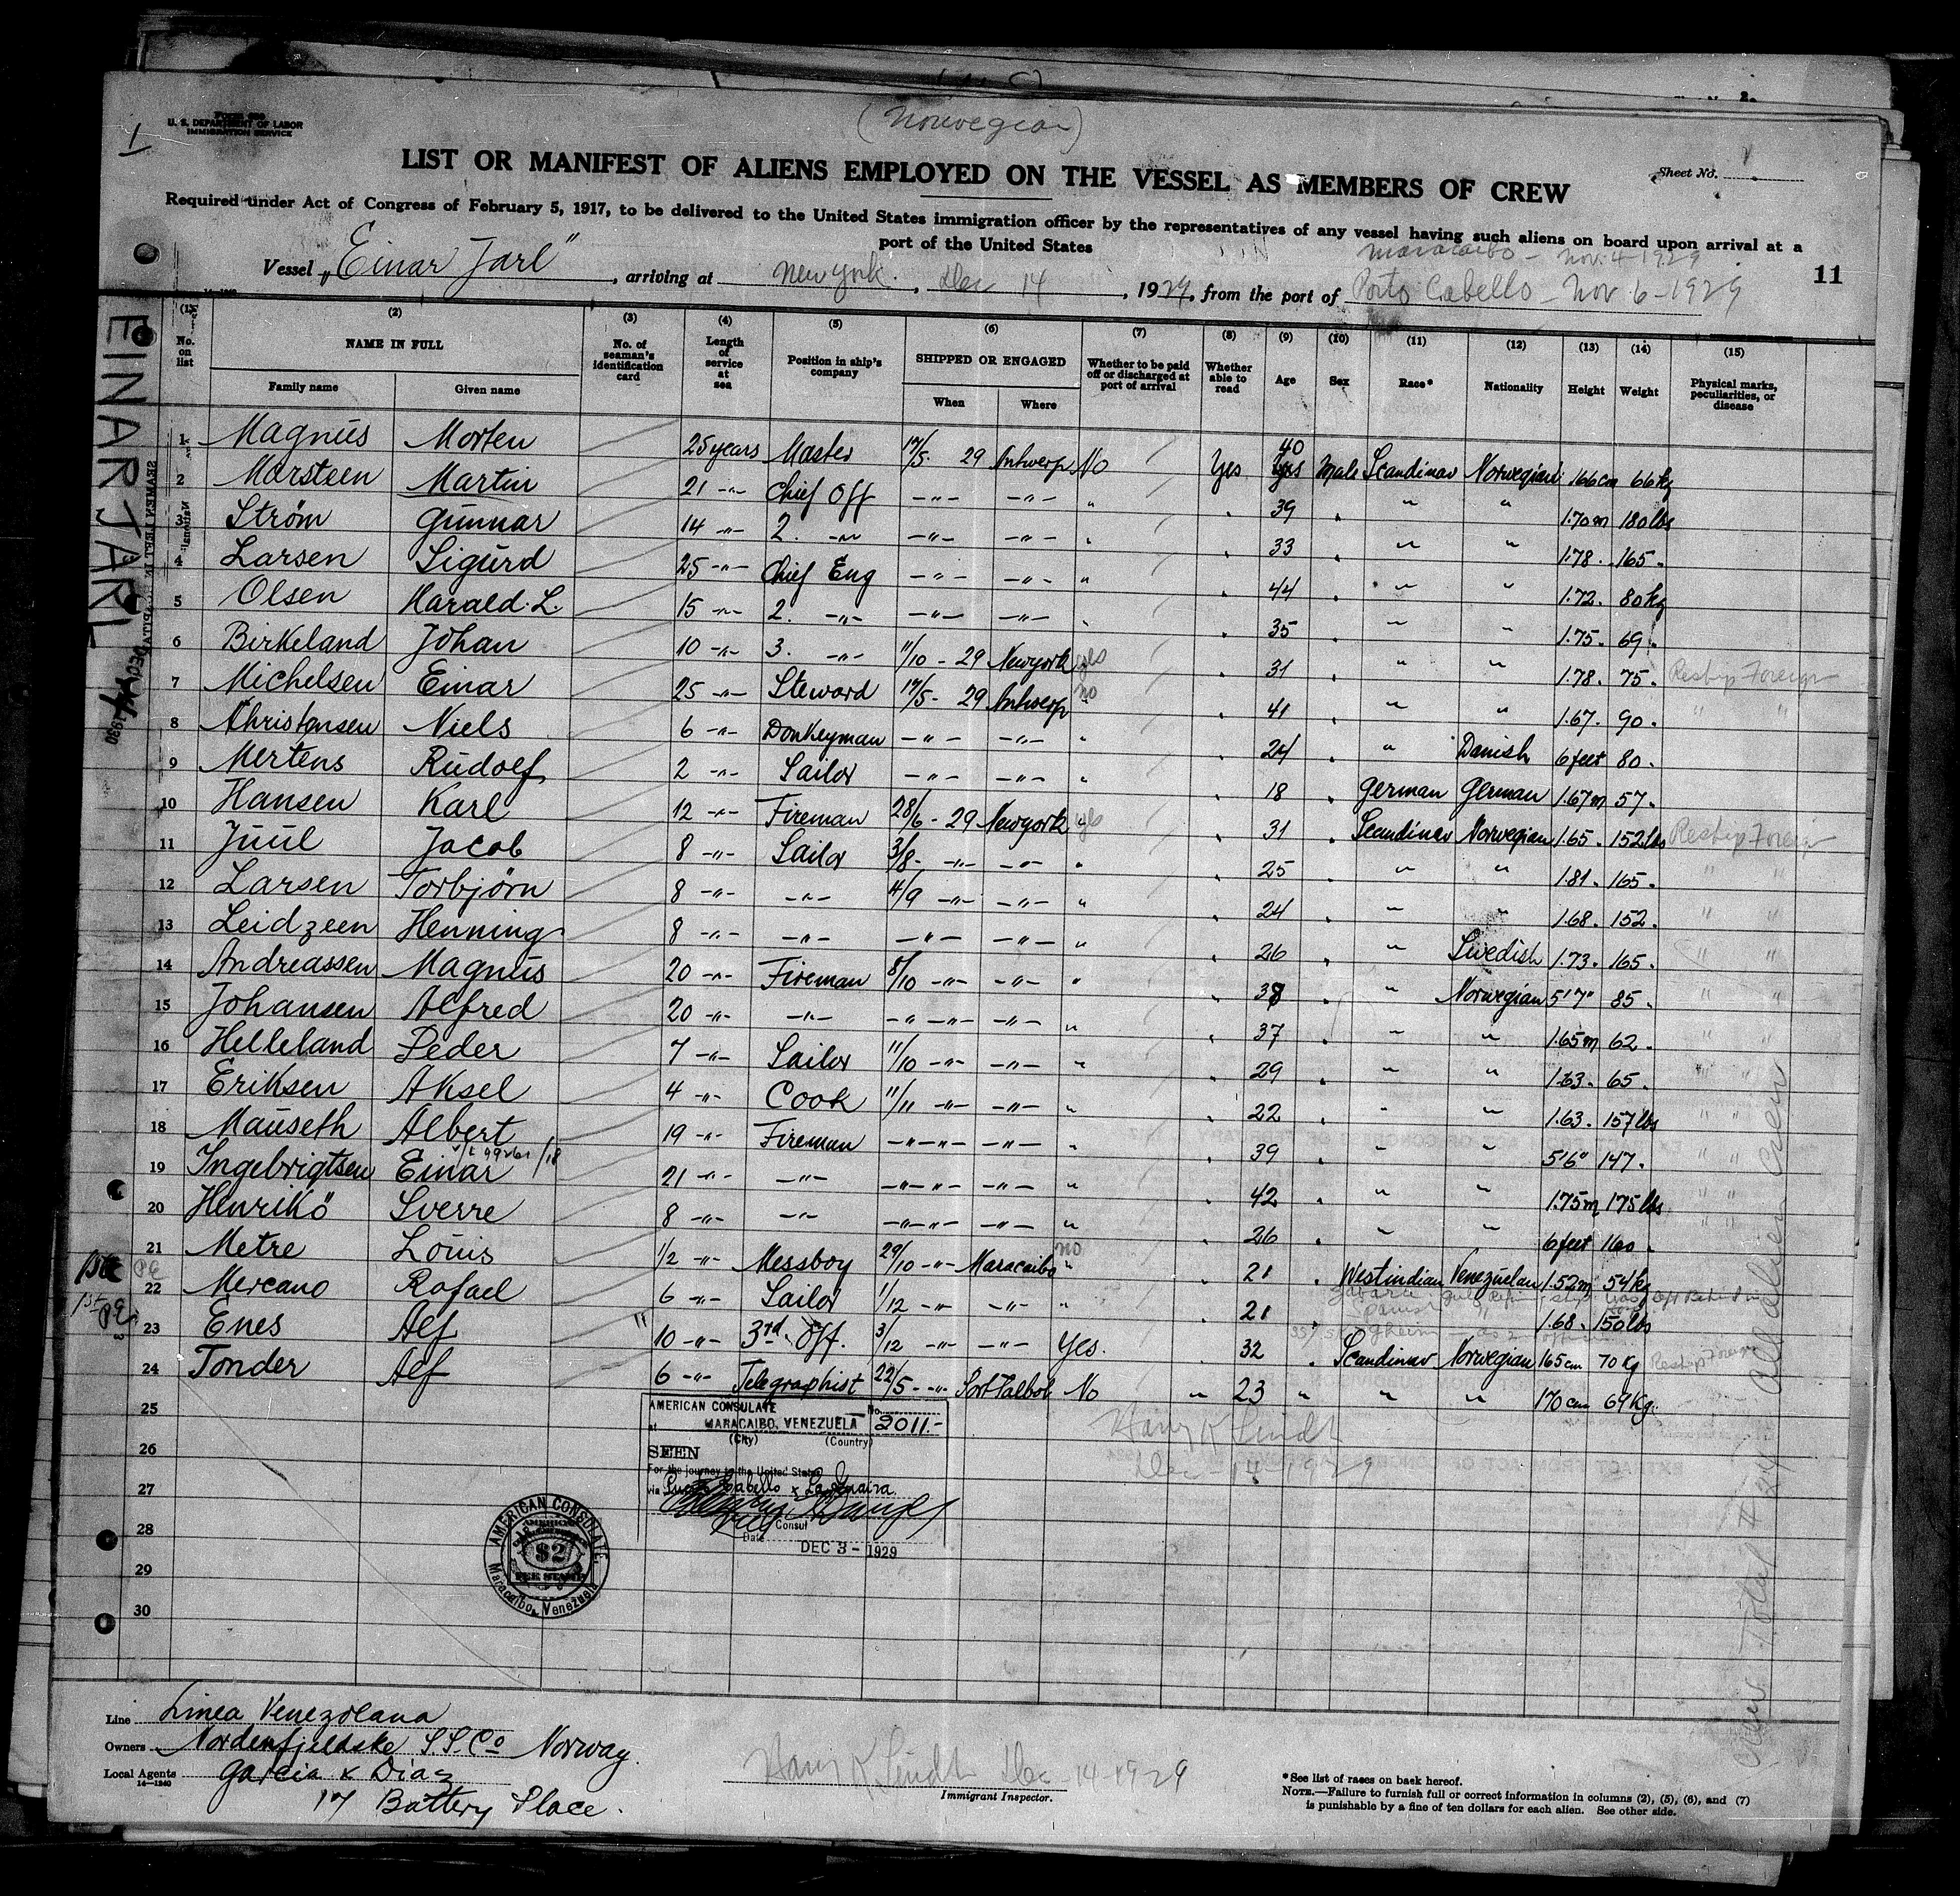 (Norwegian)
1
U. S. DEPARTMENT OF LABOR
IMMIGRATION SERVICE
LIST OR MANIFEST OF ALIENS EMPLOYED ON THE VESSEL AS MEMBERS OF CREW
Sheet No.
Required under Act of Congress of February 5, 1917, to be delivered to the United States immigration officer by the representatives of any vessel having such aliens on board upon arrival at a
port of the United States
Maracaibo - Nov. 4 - 1929
Vessel „Einar Jarl", arriving at New York, Dec 14, 1929, from the port of Porto Cabello - Nov 6 - 1929
11
EINAR JARL
(1) (2) (3) (4) (5) (6) (7) (8) (9) (10) (11) (12) (13) (14) (15)
No. on list NAME IN FULL No. of seaman's identification card Length of service at sea Position in ship's company SHIPPED OR ENGAGED Whether to be paid off or discharged at port of arrival Whether able to read Age Sex Race* Nationality Height Weight Physical marks, peculiarities, or disease
Family name Given name When Where
1 Magnus Morten 25 years Master 17/5. 29 Antwerp No Yes 40 Male Scandinav Norwegian 166 cm 66 kg
2 Morstsen Martin 21 -"- Chief Off -"- -"- " 39 " " 1.70 m 180 lbs
3 Strøm Gunnar 14 -"- 2. -"- -"- -"- " 33 " " 1.78. 165.
4 Larsen Sigurd 25 -"- Chief Eng -"- -"- " 44 " " 1.72. 80 kg
5 Olsen Harald. L. 15 -"- 2. -"- -"- -"- " 35 " " 1.75. 69.
6 Birkeland Johan 10 -"- 3. -"- 11/10 - 29 Newyork yes 31 " " 1.78. 75. Reship Foreign
7 Michelsen Einar 25 -"- Steward 17/5- 29 Antwerp no 41 " " 1.67. 90. " "
8 Christensen Niels 6 -"- Donkeyman -"- -"- " 24 " Danish 6 feet 80.
9 Mertens Rudolf 2 -"- Sailor -"- -"- " 18 German German 1.67 m 57.
10 Hansen Karl 12 -"- Fireman 28/6 - 29 Newyork yes 31 Scandinav Norwegian 1.65. 152 lbs Reship Foreign
11 Juul Jacob 8 -"- Sailor 3/8- -"- -"- " 25 " " 1.81. 165. " "
12 Larsen Torbjørn 8 -"- -"- 4/9 -"- -"- " 24 " " 1.68. 152. " "
13 Leidzeen Henning 8 -"- -"- -"- -"- " 26 " Swedish 1.73. 165. " "
14 Andreassen Magnus 20 -"- Fireman 8/10 -"- -"- " 38 " Norwegian 5'7" 85. " "
15 Johansen Alfred 20 -"- -"- -"- -"- -"- " 37 " " 1.65 m 62. " "
16 Helleland Peder 7 -"- Sailor 11/10 -"- -"- " 29 " " 1.63. 65. " "
17 Eriksen Aksel 4 -"- Cook 11/11 -"- -"- " 22 " " 1.63. 157 lbs " "
18 Mauseth Albert 19 -"- Fireman -"- -"- -"- " 39 " " 5'6" 147. " "
19 Ingebrigtsen Einar 21 -"- -"- -"- -"- -"- " 42 " " 1.75 m 175 lbs " "
20 Henrikö Sverre 8 -"- -"- -"- -"- -"- " 26 " " 6 feet 160.
21 Metre Louis 1/2 -"- Messboy 29/10 -"- Maracaibo no 21 Westindian Venezuelan 1.52 m 54 kg
22 Mercano Rafael 6 -"- Sailor 1/12 -"- -"- " 21 Spanish " 1.68. 150 lbs
23 Enes Alf 10 -"- 3rd. Off. 3/12 -"- -"- Yes. 32 Scandinav Norwegian 165 cm 70 kg Reship Foreign
24 Tonder Alf 6 -"- Telegraphist 22/5 -"- Port Talbot No " 23 " " " 170 cm 69 Kg.
25
26
27
28
29
30
AMERICAN CONSULATE No. 2011.-
at MARACAIBO, VENEZUELA
(City) (Country)
SEEN
For the journey to the United States
via Puerto Cabello & La Guaira
Consul
Date DEC 3 - 1929
AMERICAN CONSULATE,
$2
FEE STAMP
Maracaibo, Venezuela
Harry K Lindt
Dec 14 - 1929
Crew Total # 24 All alien crew
Line Linea Venezolana
Owners Nordenfjeldske S.S. Co Norway
Local Agents Garcia & Diaz
14—1240
17 Battery Place.
Harry K Lindt Dec 14 1929
Immigrant Inspector.
*See list of races on back hereof.
NOTE.—Failure to furnish full or correct information in columns (2), (5), (6), and (7)
is punishable by a fine of ten dollars for each alien. See other side.